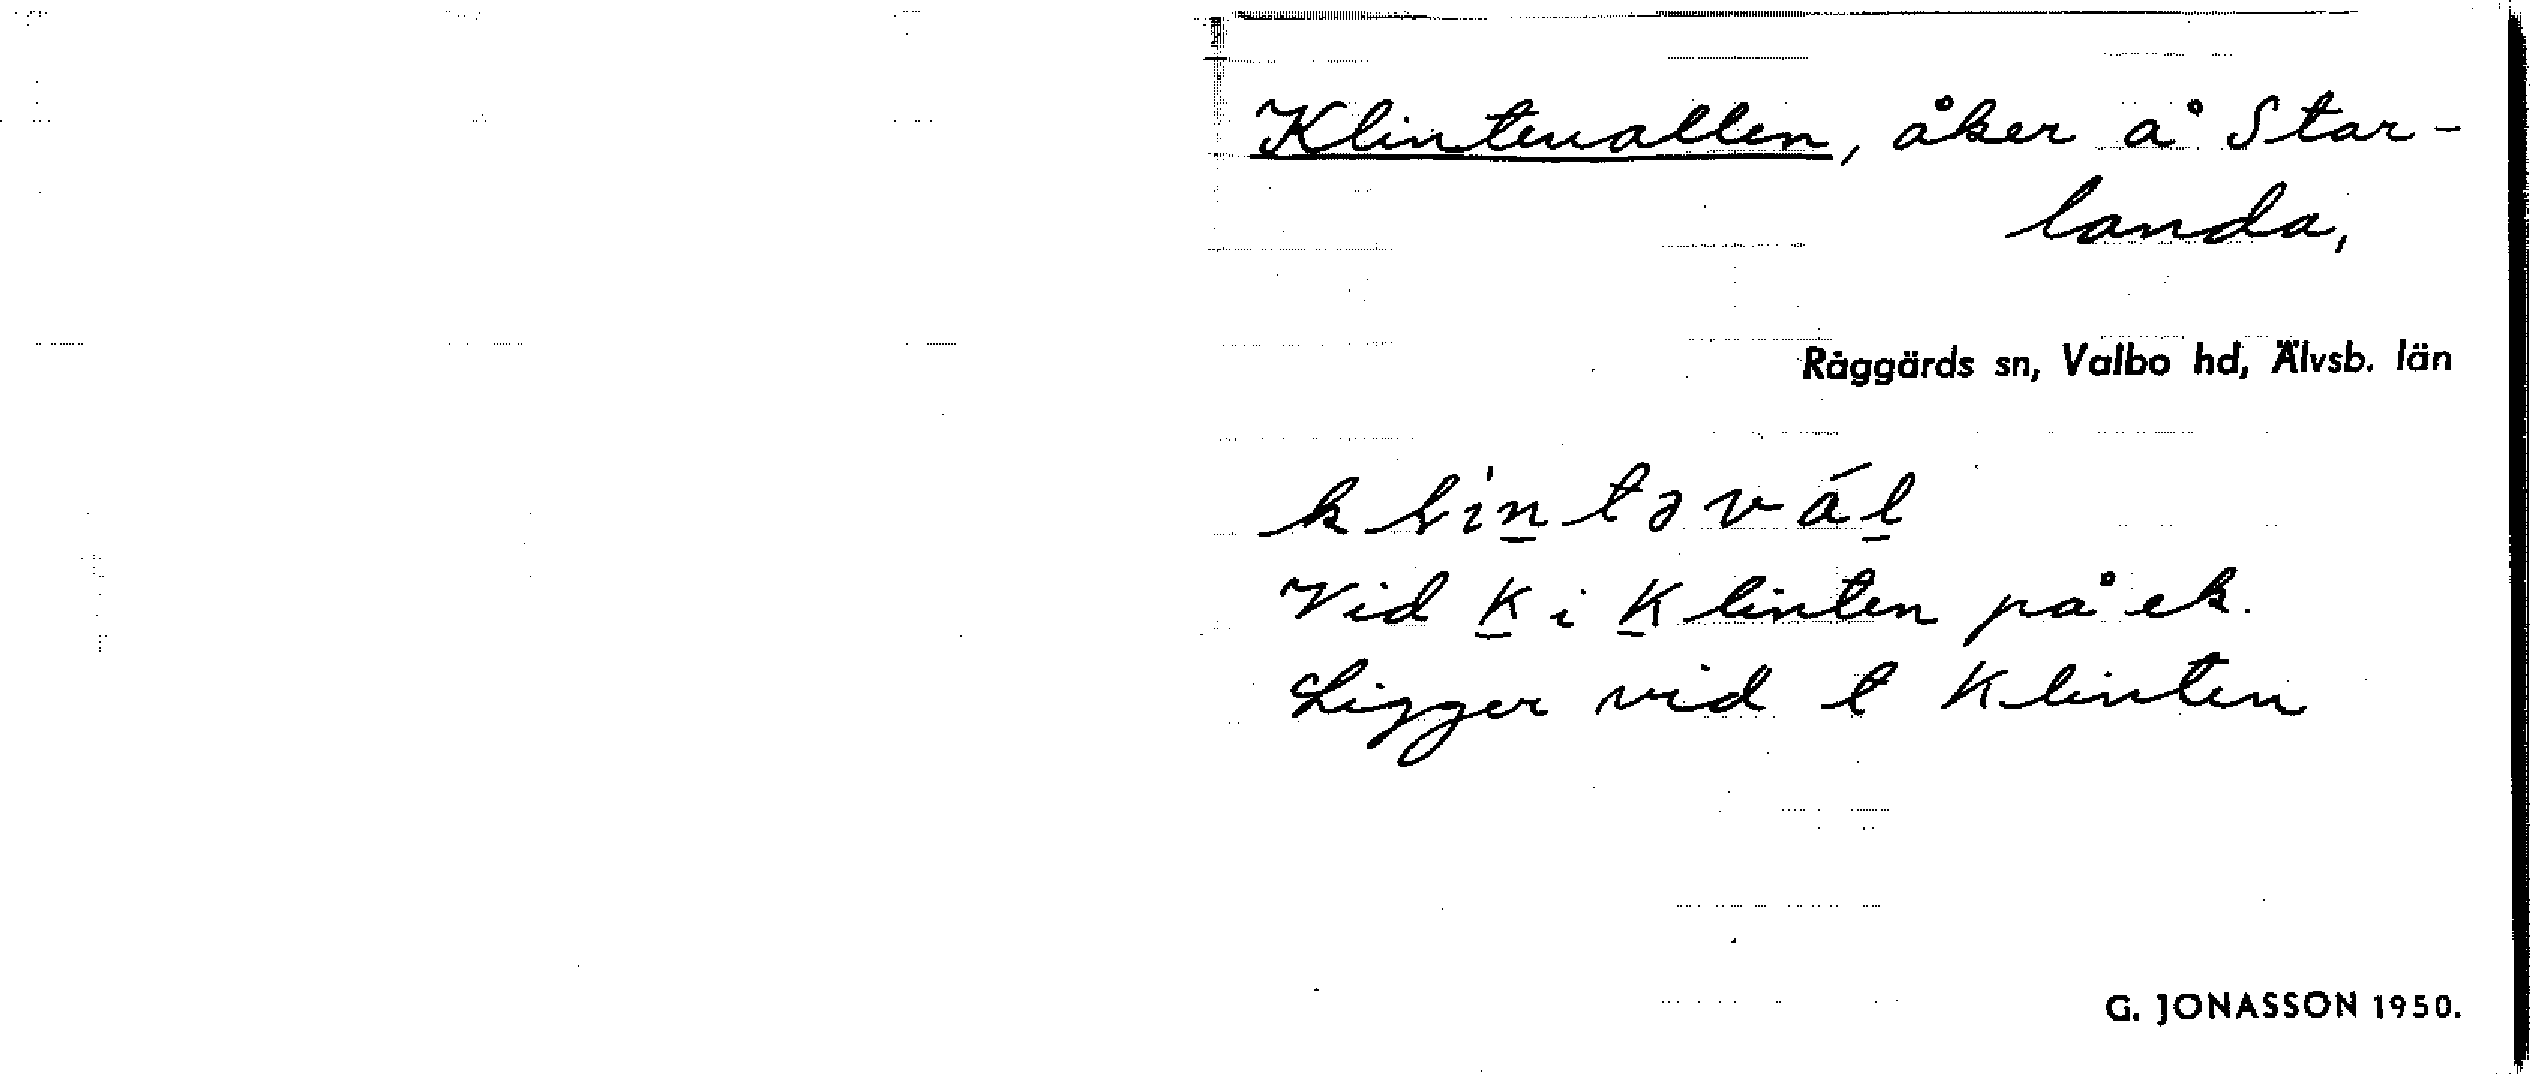 Klintevallen, åker å Star-
landa,
Råggärds sn, Valbo hd, Älvsb. län
kɽin̠təvál̠
Vid K i Klinten på ek.
Ligger vid t Klinten
G. JONASSON 1950.